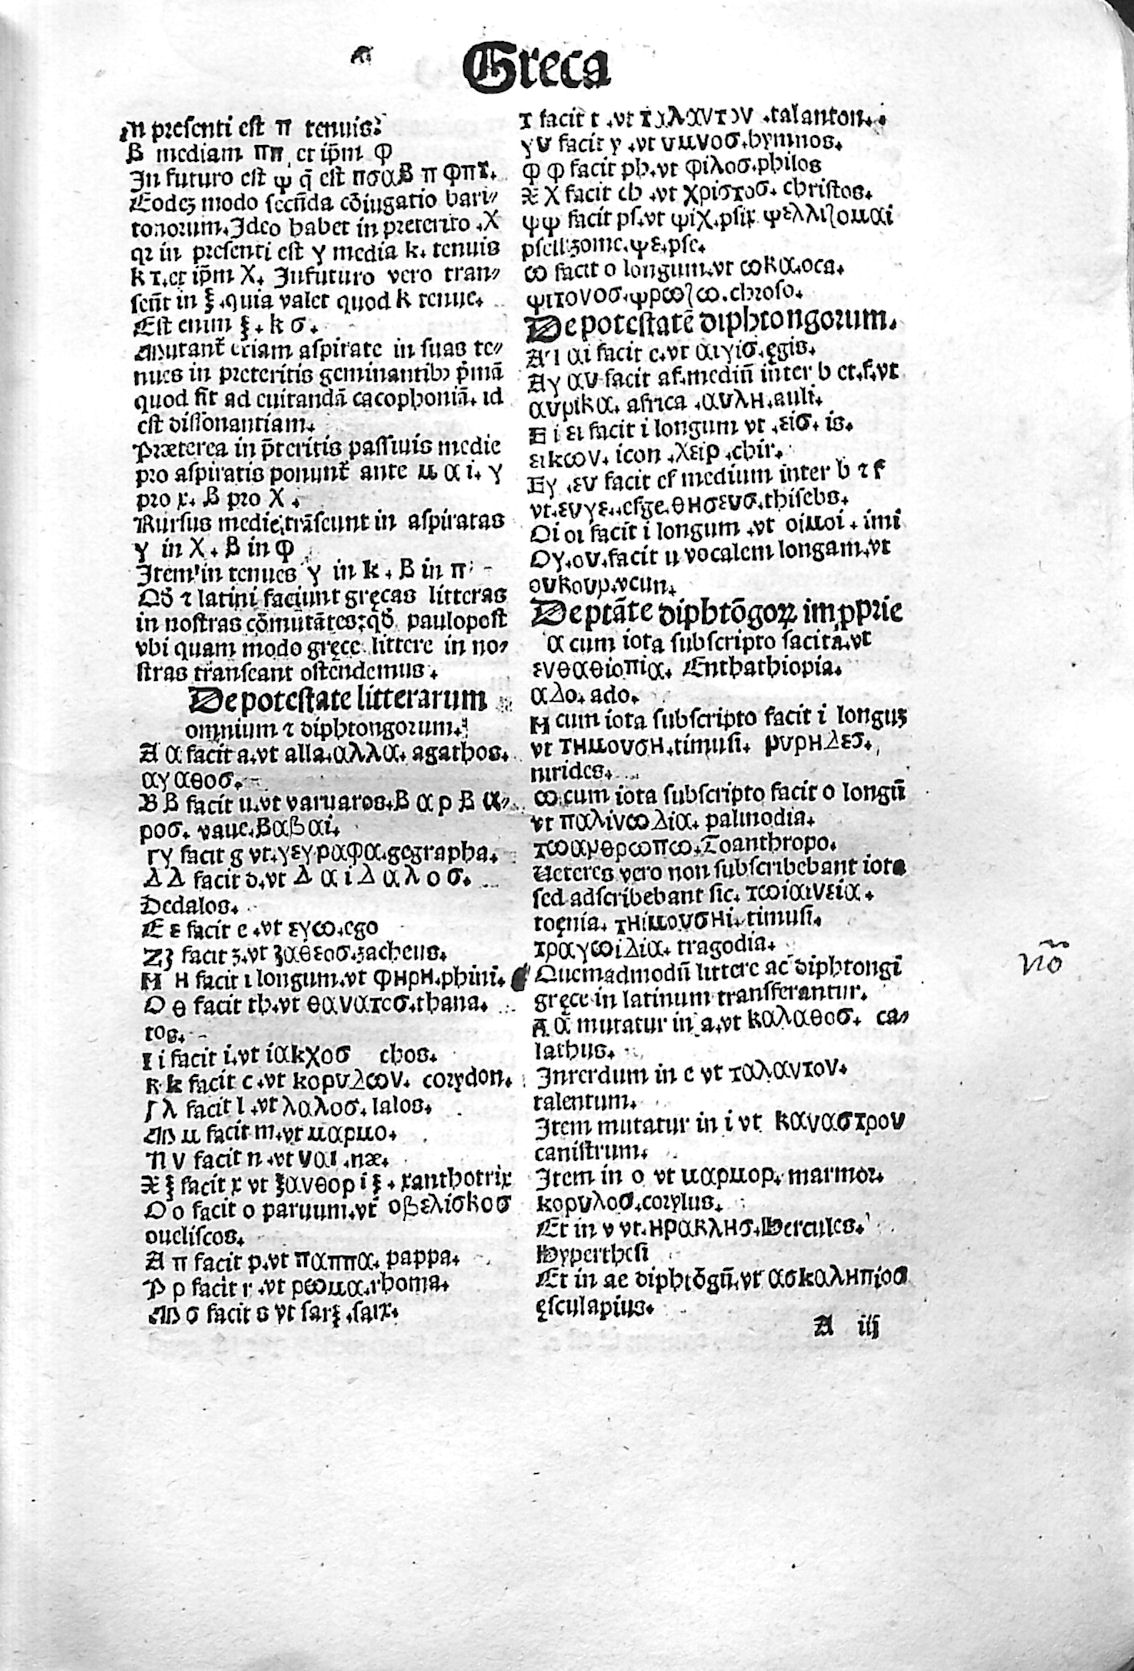 Greca
In presenti est π tenuis.
β mediam ππ et ip̄m φ
In futuro est ψ q̄ est πσαβ π φπτ.
Eodeʒ modo secūda cōiugatio bari⸗
tonorum. Ideo habet in preterito .χ
qꝛ in presenti est γ media k. tenuis
k τ. et ip̄m χ. In futuro vero tran⸗
seūt in ξ .quia valet quod k tenue.
Est enim ξ . k σ .
Mutant̄ etiam aspirate in suas te⸗
nues in preteritis geminantibꝰ p̄mā
quod fit ad euitandā cacophoniā. id
est dissonantiam.
Præterea in p̄teritis passiuis medie
pro aspiratis ponunt̄ ante μ α ι. γ
pro χ. β pro χ .
Rursus medie trāseunt in aspiratas
γ in χ . β in φ
Item in tenues γ in k . β in π
Qď ⁊ latini faciunt gręcas litteras
in nostras cōmutātes: qď paulopost
vbi quam modo gręce littere in no⸗
stras transeant ostēdemus .
De potestate litterarum
omnium ⁊ diphtongorum.
Α α facit a. vt alla. αλλα. agathos.
αγαθοσ.
Β β facit u. vt varuaros. β α ρ β α⸗
ροσ. vaue. βαβαί.
Γγ facit g vt. γεγραφα. gegrapha.
Δ Δ facit d. vt Δ α ι Δ α λ ο σ .
Dedalos.
Ε ε facit e . vt εγω. ego
Ζζ facit ʒ. vt ζαθεοσ. ʒacheus.
Η Η facit i longum. vt φΗρΗ. phini.
Θ θ facit th. vt θανατεσ. thana.
tos.
Ι ι facit i. vt ίακχοσ chos.
Κ k facit c . vt κορυΔων. corydon.
Λ λ facit l . vt λαλοσ. lalos.
Μ μ facit m. vt μαρμο.
Ν ν facit n . vt ναι .næ.
Ξ ξ facit x vt ξανθορ ι ξ . xanthotrix
Ο ο facit o paruum. vt οβελίσκοσ
oueliscos.
Π π facit p. vt παππα. pappa.
Ρ ρ facit r . vt ρωμα. rhoma.
Σ σ facit s vt sarξ .sarx.
τ facit t . vt ταλαντον .talanton.
γυ facit y . vt υμνοσ. hymnos.
φ φ facit ph. vt φιλοσ. philos
Χ χ facit ch . vt χριστοσ. christos.
ψψ facit ps. vt ψιχ. psix ψελλιζομαι
psellizome. ψε. pse.
ω facit o longum. vt ωκα. oca.
ψιτονοσ. ψρωζω. chroso.
De potestatē diphtongorum.
Αι αι facit e. vt αιγισ. ęgis.
Αγ αυ facit af. mediū inter b et .f. vt
αυρικα. africa . αυλΗ. auli.
Ε ι ει facit i longum vt . είσ. is.
εικων. icon . χειρ . chir.
Εγ . ευ facit ef medium inter b ⁊ f
vt. ευγε. efge. θΗσευσ. thisebs.
Οι οι facit i longum . vt οίμοι . imi
Ογ. ου. facit u vocalem longam. vt
ουκουρ. vcun.
De ptāte diphtōgoꝝ impprie
α cum iota subscripto facit a. vt
ενθαθιοπια. Enthathiopia.
αΔο. ado.
Η cum iota subscripto facit i longuʒ
vt τΗμουσΗ. timusi. ρυρΗΔεσ.
nirides.
ω cum iota subscripto facit o longū
vt παλινωΔία. palinodia.
τωανθρωπω. Toanthropo.
Veteres vero non subscribebant iota
sed adscribebant sic. τωιαινεια .
toęnia. τΗιμουσΗι. timusi.
τραγωιΔια. tragodia.
Quemadmodū littere ac diphtongi
gręce in latinum transferantur.
Α α mutatur in a. vt καλαθοσ. ca⸗
lathus.
Interdum in e vt ταλαντον.
talentum.
Item mutatur in i vt καναστρον
canistrum.
Item in o vt μαρμορ. marmor.
κορυλοσ. corylus.
Et in v vt. ΗρακλΗσ. Hercules.
Hyperthesi
Et in ae diphtōgū. vt ασκαλΗπίοσ
ęsculapius.
A iij